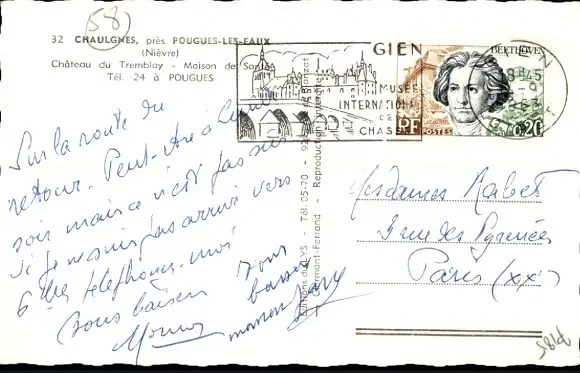 58
32 CHAULGNES, près POUGUES-LES-EAUX
(Nièvre)
Château du Tremblay - Maison de Santé
Tél. 24 à POUGUES
GIEN
MUSÉE
INTERNATIONAL
DE LA
CHASSE
BEETHOVEN
GIEN
18H45
RF
POSTES
0,20
Sur la route du
retour. Peut-être à
soir mais ce n'est pas sûr
si je ne suis pas arrivé vers
6 hres téléphonez-moi
Tous baisers
vous
baisers
Mesdames Rabet
3 rue des Pyrénées
Paris (XXe)
Editions du LYS - Tél. 05-70 - 92,
Clermont-Ferrand - Reproduction interdite
P185